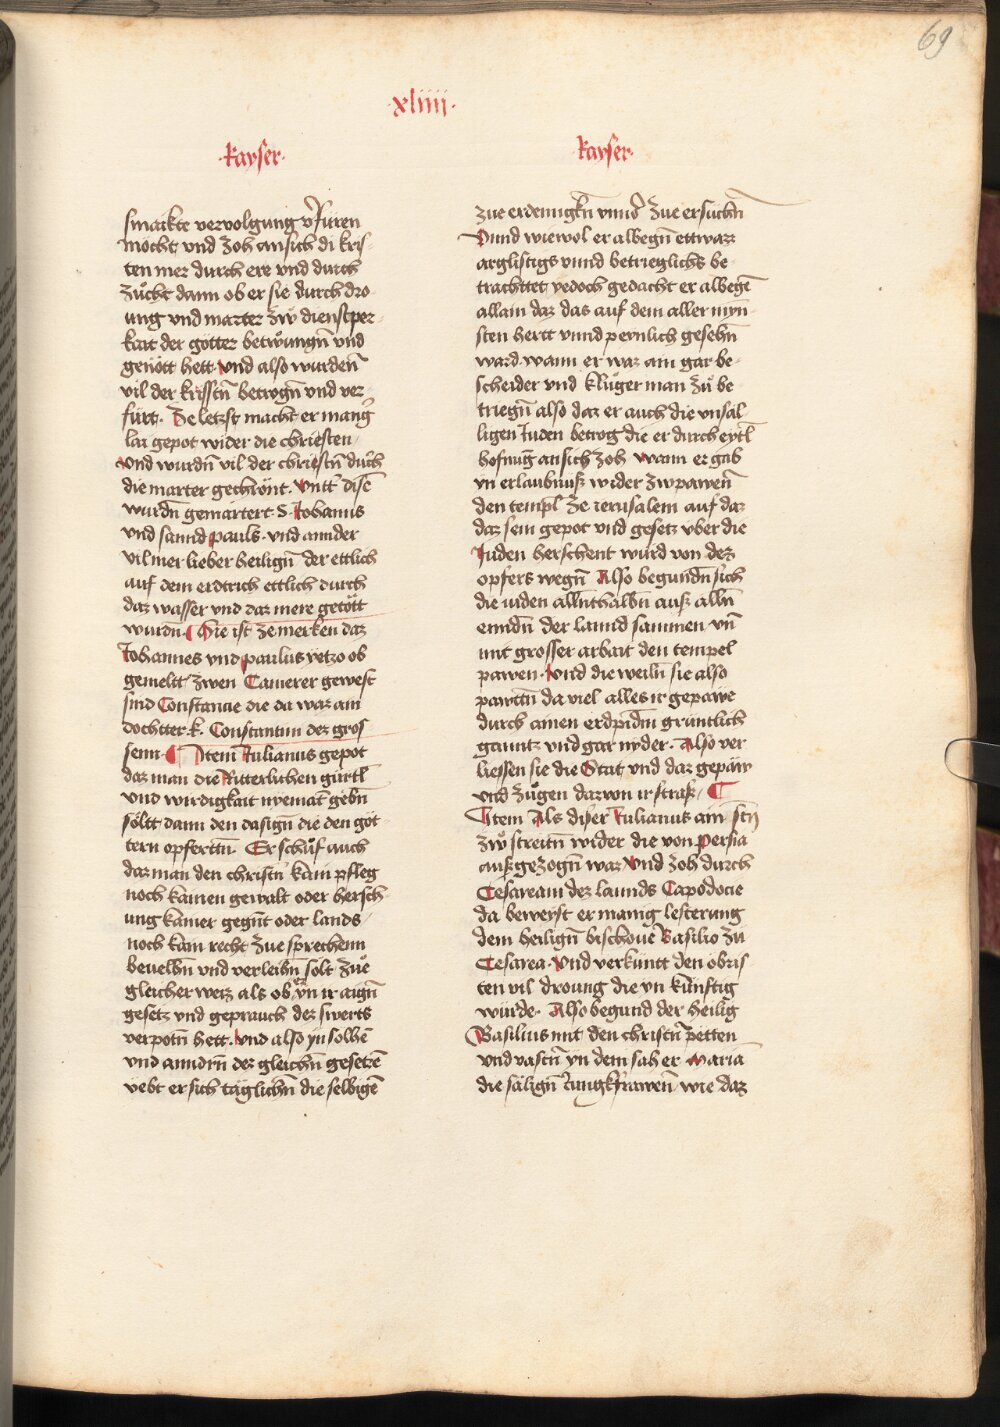 69
·xliiii·
·kayser·
smaikte vervolgung v̄furen
mocht vnd zoh an sich di kris-
ten mer durch ere vnd durch
zücht dann ob er sie durch dro
ung vnd marter zẘ dienstper-
kait der götter betwungn̄ vnd
genött hett· vnd also wurden̄
vil der kristn̄ betrogn̄ vnd ver-
fürt· Ze letzst macht er mang
lai gepot wider die chriesten
vnd wurdn̄ vil der chriestn̄ durch
die marter gechrönt· vntt̄ disē
wurdn̄ gemartert S· Johanns
vnd sannd pauls· vnd annder
vil mer lieber heilign̄ der ettlich
auf dem erdtrich ettlich durch
daz wasser vnd daz mere getött
wurdn̄· Hie ist ze merken daz
Johannes vnd paulus yetzo ob
gemeltt zwen Camerer gewest
sind Constancie die da waz ain
dochtter k· Constantini dez gros
senn· Item Julianus gepot
daz man die Ritterlichen gürtl̄
vnd wirdigkait nyemāt gebn̄
söltt dann den dasign̄ die den göt
tern opfertn̄· Er schuf auch
daz man den christn̄ kain pfleg
noch kainen gewalt oder hersch-
ung kainer gegn̄t oder lands
noch kain recht zue sprechenn
beuelhn̄ vnd verleihn̄ solt zue
gleicher weiz als ob yn ir aign̄
gesetz vnd geprauch dez swerts
verpotn̄ hett· vnd also yn solhē
vnd anndrn̄ der gleichn̄ gesetzē
vebt er sich täglichn̄ die selbigē
·kayser·
zue erdemigkn̄ vnnd zue ersuchn̄
Vnnd wiewol er albegn̄ ettwaz
arglistigs vnnd betrieglichs be-
trachttet yedoch gedacht er albegē
allain daz das auf dem aller myn-
sten hertt vnnd peynlich gesehn̄
ward· wann er waz ain gar be-
scheider vnd klüger man zu be-
triegn̄ also daz er auch die vnsal-
ligen Juden betrog die er durch eytl̄
hofnuḡ an sich zoh wann er gab
yn erlaubnuß wider zwpawen̄
den templ ze ierusalem auf daz
daz sein gepot vnd gesetz vber die
Juden herschent würd von dez
opfers wegn̄ Also begundn̄ sich
die iuden allnthalbn̄ auß alln̄
enndn̄ der lannd sammen vn̄
mit grosser arbait den tempel
pawen· Vnd die weiln̄ sie also
pawttn̄ da viel alles ir gepawe
durch ainen erdpidm̄ grüntlich
ganntz vnd gar nyder· Also ver
liessen sie die Stat vnd daz gepäw
vnd zügen darvon ir straß·
Item Als diser Julianus ain
zẘ streittn̄ wider die von Persia
außgezogn̄ waz vnd zoh durch
Cesaream dez lannds Capodocie
da beweyst er manig lesterung
dem heilign̄ bischoue Basilio zu
Cesarea· Vnd verkuntt den obris-
ten vil droung die yn künftig
würde· Also begund der heilig
Basilius mit den christn̄ petten
vnd vastn̄ yn dem sah er Mariā
die sälign̄ iungkfrawen̄ wie daz